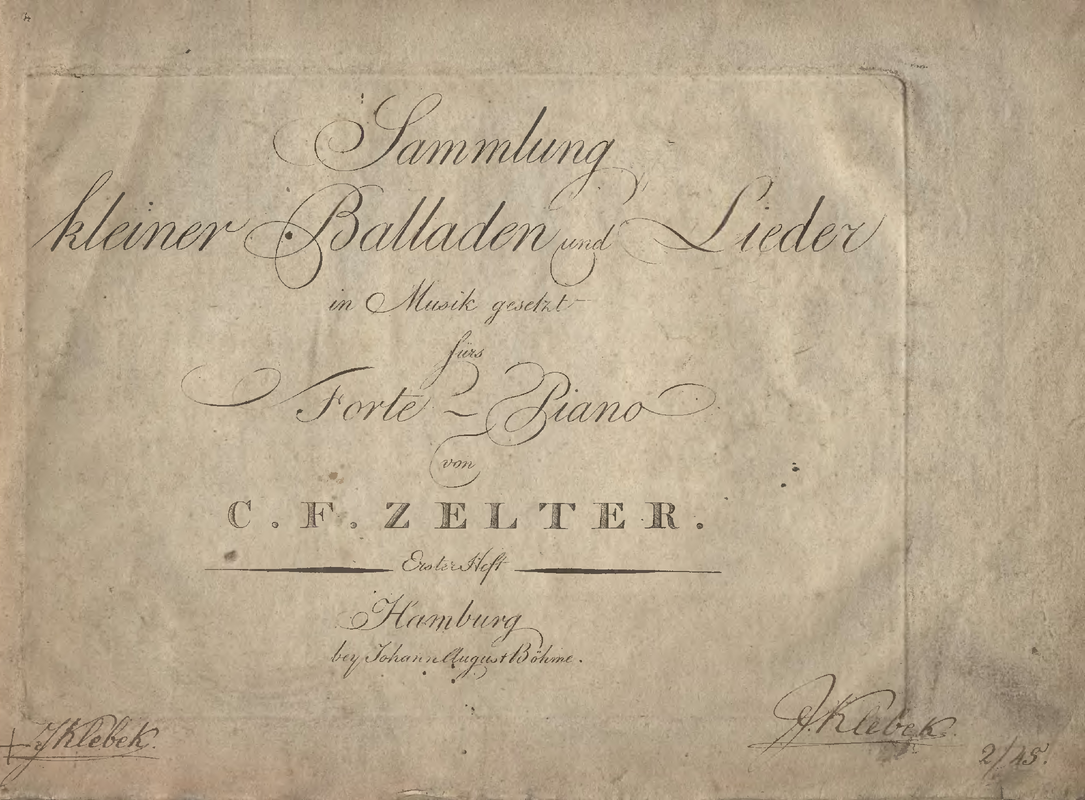 Sammlung
kleiner Balladen und Lieder
in Musik gesetzt
fürs
Forte - Piano
von
C. F. ZELTER.
Erster Heft
Hamburg
bey Johann August Böhme.
J Klebek.
J. Klebek.
2/45.